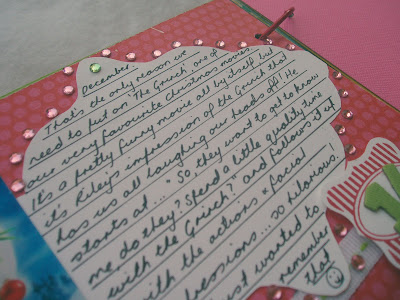 December.
That's the only reason we
need to put on 'The Grinch', one of
our very favourite Christmas movies.
It's a pretty funny movie all by itself but
it's Riley's impression of the Grinch that
has us all laughing our heads off! He
starts at... "So, they want to get to know
me do they? Spend a little quality time
with the Grinch?" and follows it up
with the actions & facial
expressions... so hilarious.
Just wanted to
remember
that